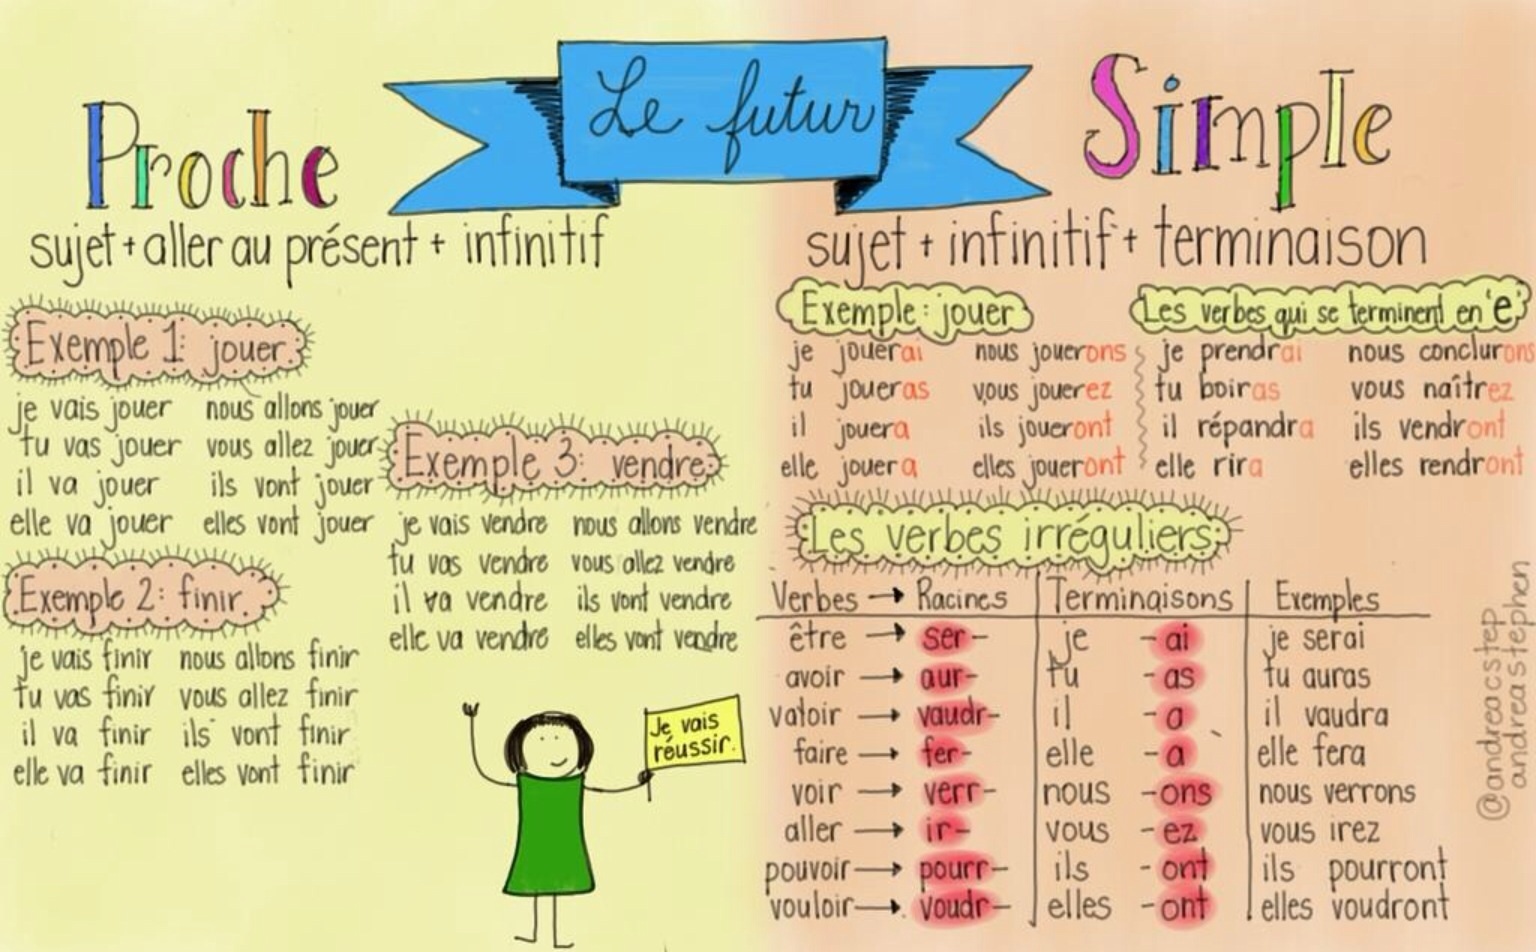 Le futur
Proche
sujet + aller au présent + infinitif
Exemple 1: jouer
je vais jouer nous allons jouer
tu vas jouer vous allez jouer
il va jouer ils vont jouer
elle va jouer elles vont jouer
Exemple 2: finir
je vais finir nous allons finir
tu vas finir vous allez finir
il va finir ils vont finir
elle va finir elles vont finir
Exemple 3: vendre
je vais vendre nous allons vendre
tu vas vendre vous allez vendre
il va vendre ils vont vendre
elle va vendre elles vont vendre
Je vais
réussir.
Simple
sujet + infinitif + terminaison
Exemple: jouer
je jouerai nous jouerons
tu joueras vous jouerez
il jouera ils joueront
elle jouera elles joueront
Les verbes qui se terminent en "e"
je prendrai nous conclurons
tu boiras vous naîtrez
il répandra ils vendront
elle rira elles rendront
Les verbes irréguliers
Verbes → Racines Terminaisons Exemples
être → ser- je -ai je serai
avoir → aur- tu -as tu auras
valoir → vaudr- il -a il vaudra
faire → fer- elle -a elle fera
voir → verr- nous -ons nous verrons
aller → ir- vous -ez vous irez
pouvoir → pourr- ils -ont ils pourront
vouloir → voudr- elles -ont elles voudront
@andreacstep
andreastephen